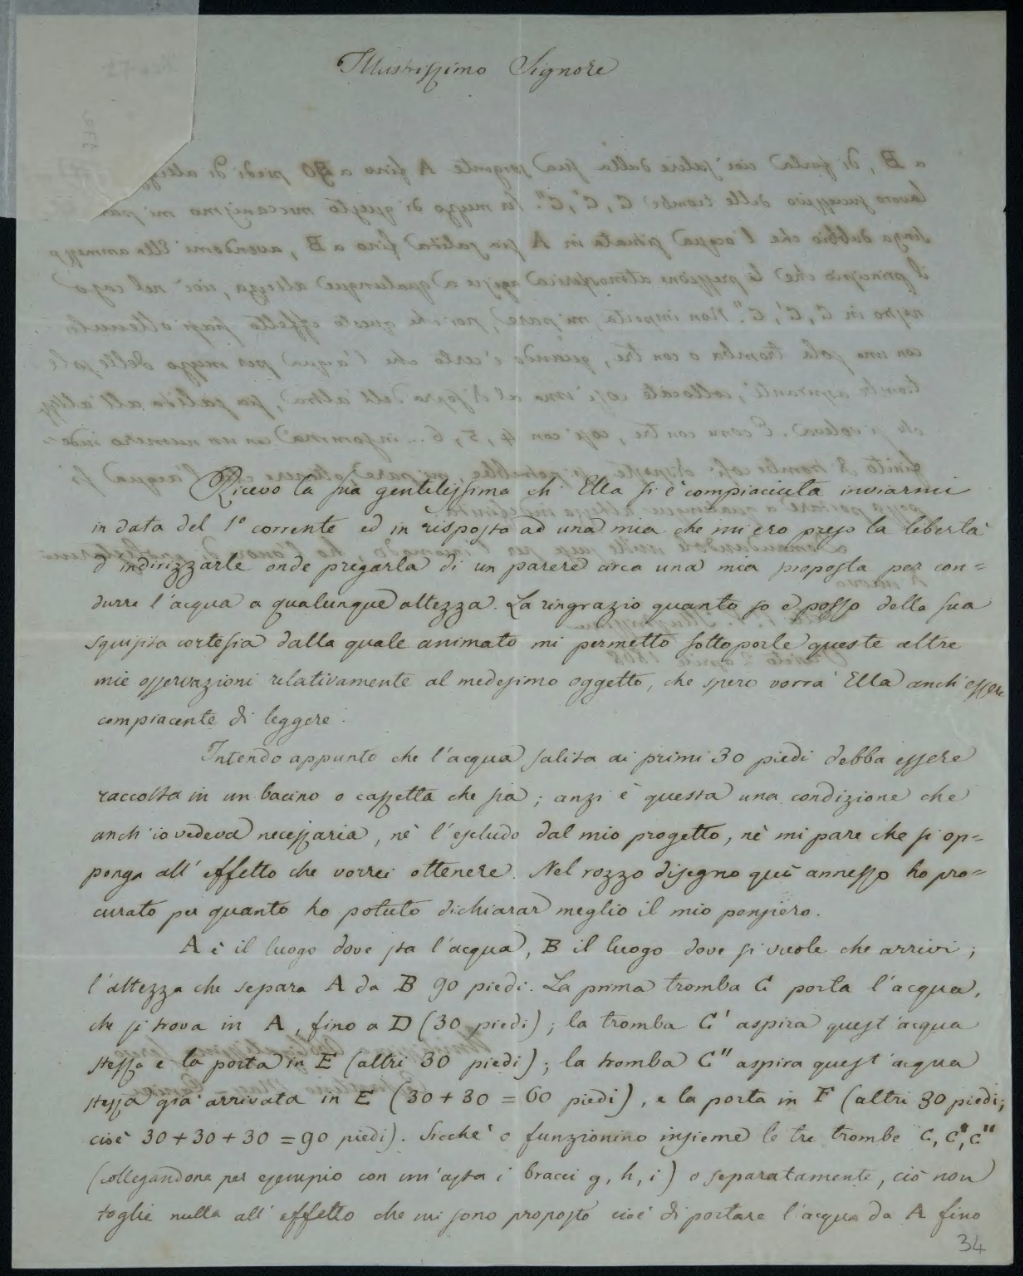 Illustrissimo Signore
Ricevo la sua gentilissima ch' Ella si è compiaciuta inviarmi
in data del 1° corrente ed in risposta ad una mia che mi ero preso la libertà
d'indirizzarle onde pregarla di un parere circa una mia proposta per con-
durre l'acqua a qualunque altezza. La ringrazio quanto so e posso della sua
squisita cortesia dalla quale animato mi permetto sottoporle queste altre
mie osservazioni relativamente al medesimo oggetto, che spero vorrà Ella anch'essere
compiacente di leggere.
Intendo appunto che l'acqua salita ai primi 30 piedi debba essere
raccolta in un bacino o cassetta che sia; anzi è questa una condizione che
anch'io vedeva necessaria, nè l'escludo dal mio progetto, nè mi pare che si op-
ponga all'effetto che vorrei ottenere. Nel rozzo disegno quì annesso ho pro-
curato per quanto ho potuto dichiarar meglio il mio pensiero.
A è il luogo dove sta l'acqua, B il luogo dove si vuole che arrivi;
l'altezza che separa A da B 90 piedi. La prima tromba C porta l'acqua,
che si trova in A, fino a D (30 piedi); la tromba C' aspira quest'acqua
stessa e la porta in E (altri 30 piedi); la tromba C" aspira quest'acqua
stessa già arrivata in E (30 + 30 = 60 piedi), e la porta in F (altri 30 piedi;
cioè 30 + 30 + 30 = 90 piedi). Sicchè o funzionino insieme le tre trombe C, C', C"
(collegandone per esempio con un'asta i bracci g, h, i) o separatamente, ciò non
toglie nulla all'effetto che mi sono proposto cioè di portare l'acqua da A fino
34